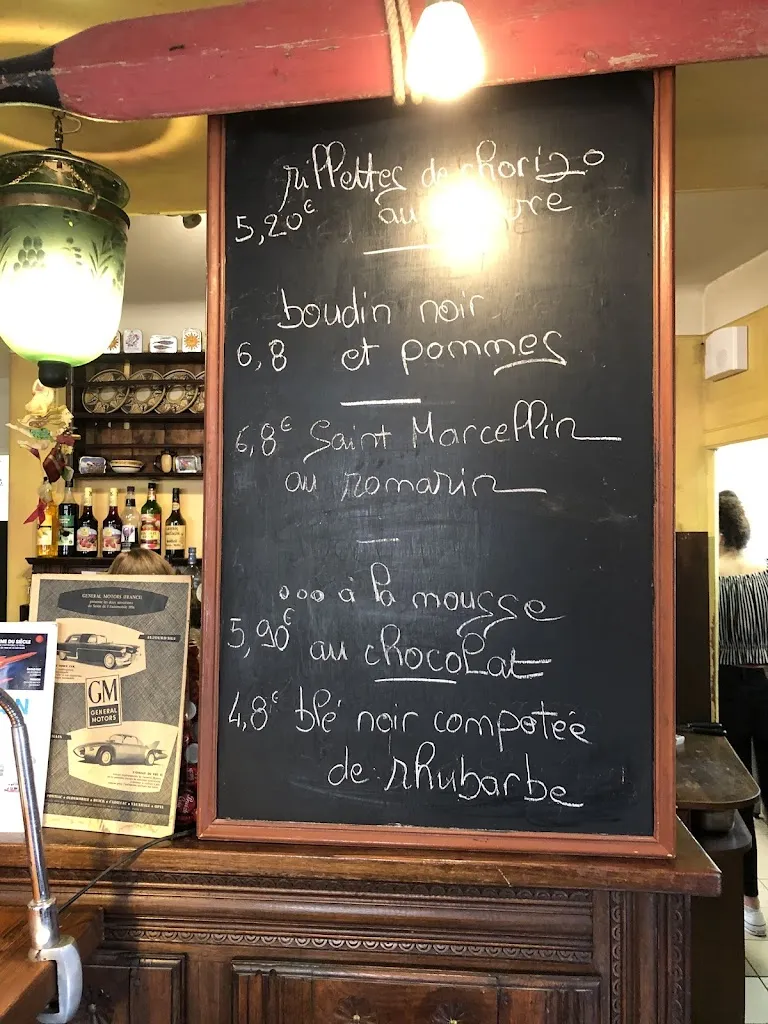 rillettes de chorizo
5,20€ au
boudin noir
6,8 et pommes
6,8€ Saint Marcellin
au romarin
ooo à la mousse
5,90€ au chocolat
4,8€ blé noir compotée
de rhubarbe
GENERAL MOTORS (FRANCE)
GM
GENERAL
MOTORS